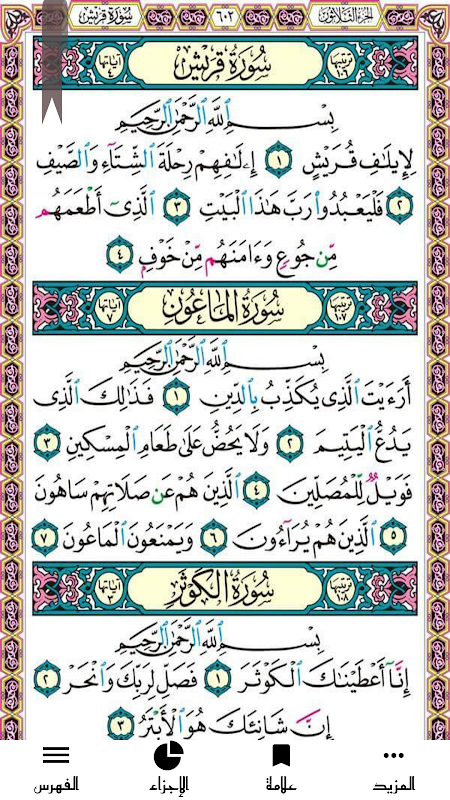 الجزء الثلاثون ٦٠٢ سورة قريش
ترتيبها ١٠٦ سُورَةُ قُرَيْشٍ آياتها ٤
بِسْمِ ٱللَّهِ ٱلرَّحْمَٰنِ ٱلرَّحِيمِ
لِإِيلَٰفِ قُرَيْشٍ ١ إِۦلَٰفِهِمْ رِحْلَةَ ٱلشِّتَآءِ وَٱلصَّيْفِ
٢ فَلْيَعْبُدُوا۟ رَبَّ هَٰذَا ٱلْبَيْتِ ٣ ٱلَّذِىٓ أَطْعَمَهُم
مِّن جُوعٍ وَءَامَنَهُم مِّنْ خَوْفٍۭ ٤
ترتيبها ١٠٧ سُورَةُ المَاعُونِ آياتها ٧
بِسْمِ ٱللَّهِ ٱلرَّحْمَٰنِ ٱلرَّحِيمِ
أَرَءَيْتَ ٱلَّذِى يُكَذِّبُ بِٱلدِّينِ ١ فَذَٰلِكَ ٱلَّذِى
يَدُعُّ ٱلْيَتِيمَ ٢ وَلَا يَحُضُّ عَلَىٰ طَعَامِ ٱلْمِسْكِينِ ٣
فَوَيْلٌ لِّلْمُصَلِّينَ ٤ ٱلَّذِينَ هُمْ عَن صَلَاتِهِمْ سَاهُونَ
٥ ٱلَّذِينَ هُمْ يُرَآءُونَ ٦ وَيَمْنَعُونَ ٱلْمَاعُونَ ٧
ترتيبها ١٠٨ سُورَةُ الكَوْثَرِ آياتها ٣
بِسْمِ ٱللَّهِ ٱلرَّحْمَٰنِ ٱلرَّحِيمِ
إِنَّآ أَعْطَيْنَٰكَ ٱلْكَوْثَرَ ١ فَصَلِّ لِرَبِّكَ وَٱنْحَرْ ٢
إِنَّ شَانِئَكَ هُوَ ٱلْأَبْتَرُ ٣
المزيد علامة الاجزاء الفهرس